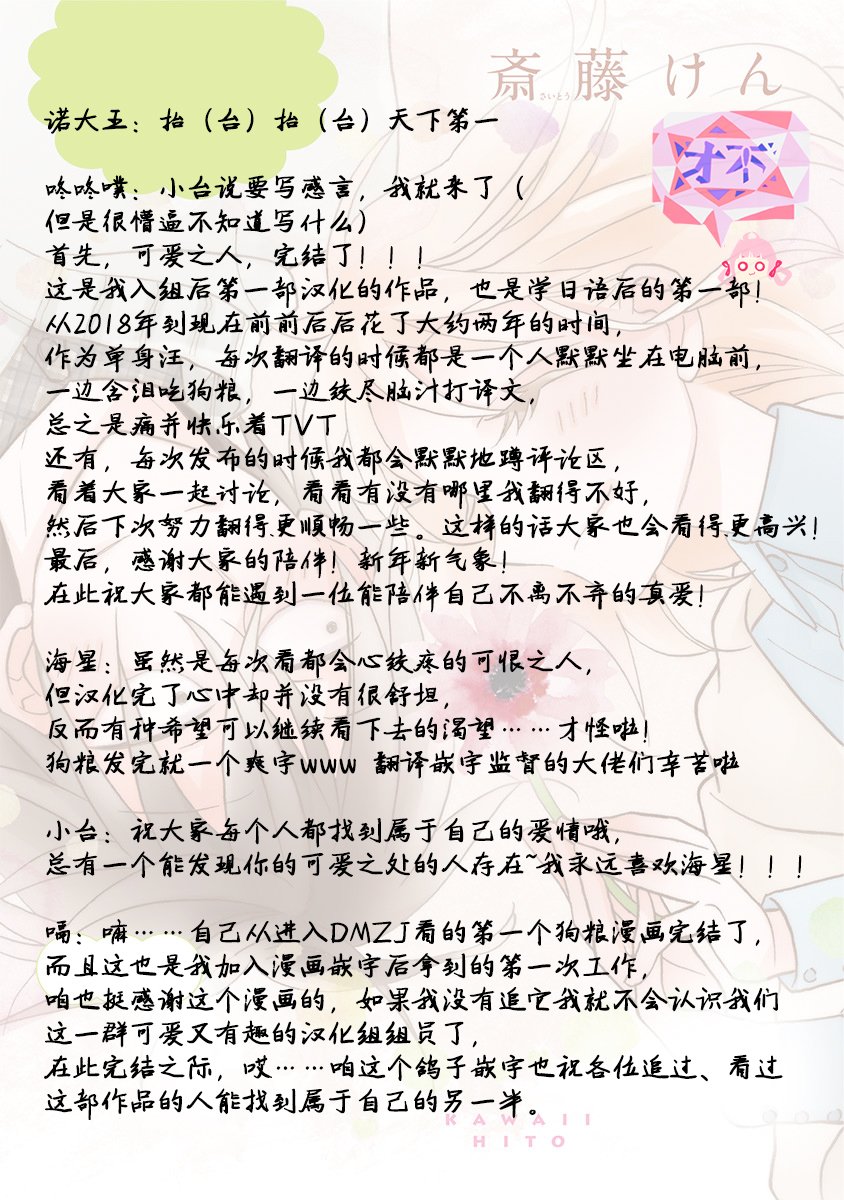 斎藤けん
さいとう
才不
诺大王：抬（台）抬（台）天下第一
咚咚噗：小台说要写感言，我就来了（
但是很懵逼不知道写什么）
首先，可爱之人，完结了！！！
这是我入组后第一部汉化的作品，也是学日语后的第一部！
从2018年到现在前前后后花了大约两年的时间，
作为单身汪，每次翻译的时候都是一个人默默坐在电脑前，
一边含泪吃狗粮，一边绞尽脑汁打译文，
总之是痛并快乐着TVT
还有，每次发布的时候我都会默默地蹲评论区，
看着大家一起讨论，看看有没有哪里我翻得不好，
然后下次努力翻得更顺畅一些。这样的话大家也会看得更高兴！
最后，感谢大家的陪伴！新年新气象！
在此祝大家都能遇到一位能陪伴自己不离不弃的真爱！
海星：虽然是每次看都会心绞疼的可恨之人，
但汉化完了心中却并没有很舒坦，
反而有种希望可以继续看下去的渴望……才怪啦！
狗粮发完就一个爽字www 翻译嵌字监督的大佬们辛苦啦
小台：祝大家每个人都找到属于自己的爱情哦，
总有一个能发现你的可爱之处的人存在~我永远喜欢海星！！！
嗝：嘛……自己从进入DMZJ看的第一个狗粮漫画完结了，
而且这也是我加入漫画嵌字后拿到的第一次工作，
咱也挺感谢这个漫画的，如果我没有追它我就不会认识我们
这一群可爱又有趣的汉化组组员了，
在此完结之际，哎……咱这个鸽子嵌字也祝各位追过、看过
这部作品的人能找到属于自己的另一半。
KAWAII
HITO